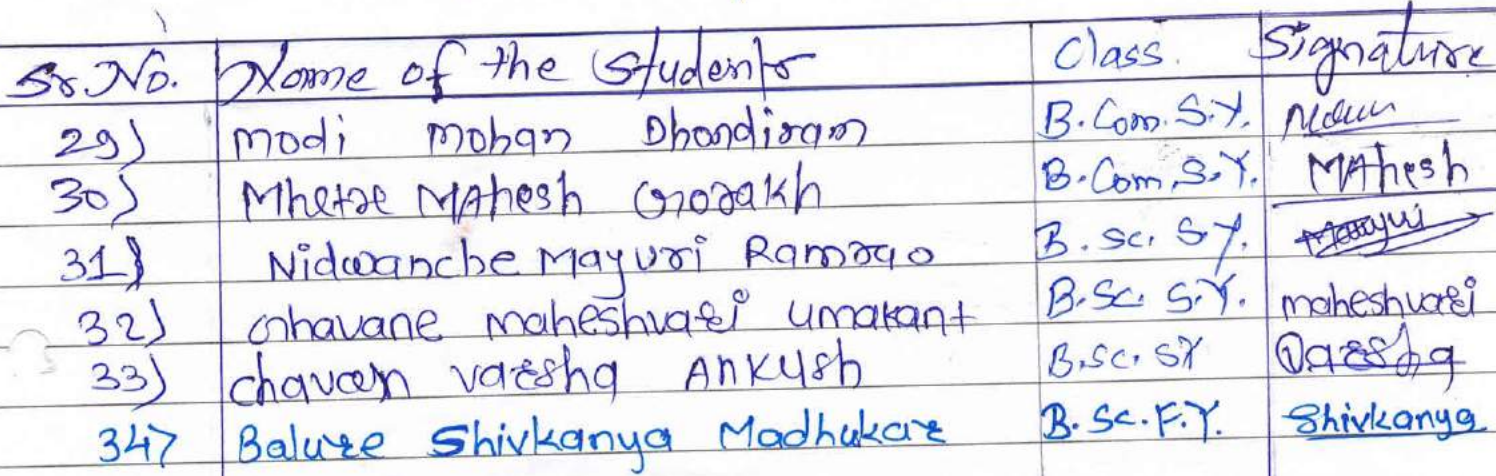 Sr. No. Name of the Students Class. Signature
29) Modi Mohan Dhondiram B.Com. S.Y.
30) Mhetre MAhesh Gorakh B.Com. S.Y. MAhesh
31) Nidwanche Mayuri Ramrao B.Sc. S.Y. Mayuri
32) Ghavane maheshvari Umakant B.Sc. S.Y. maheshvari
33) chavan varsha Ankush B.Sc. SY Varsha
34) Balure Shivkanya Madhukar B.Sc. F.Y. Shivkanya